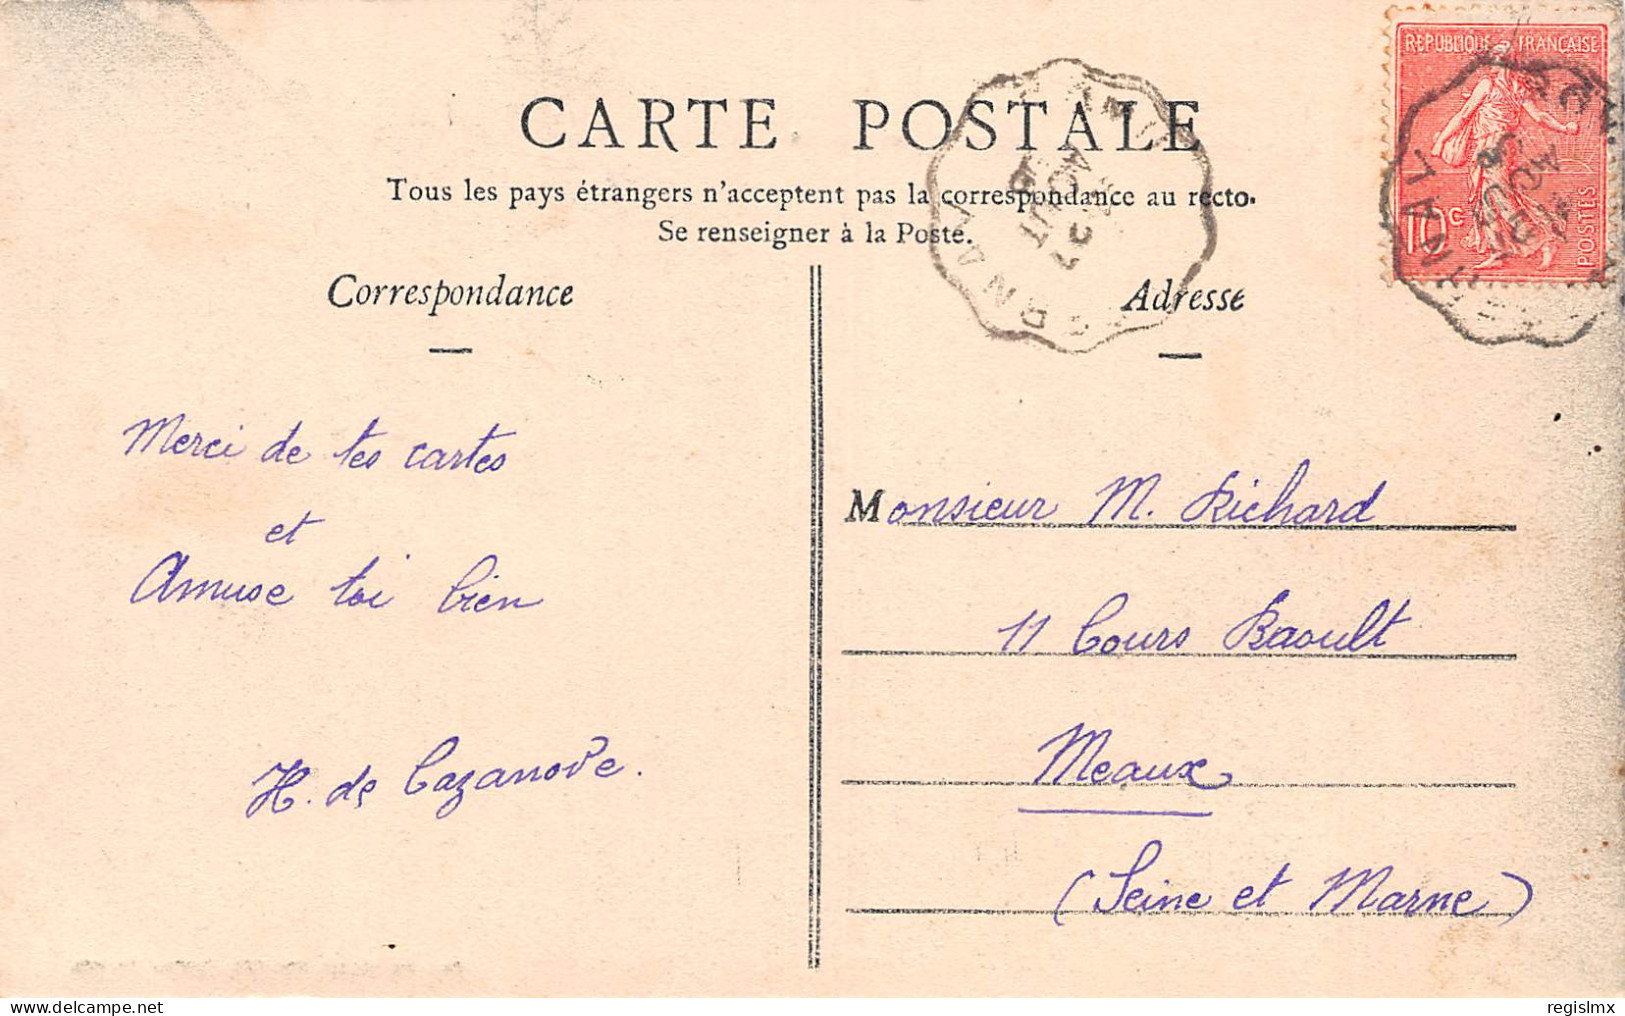 CARTE POSTALE
Tous les pays étrangers n'acceptent pas la correspondance au recto.
Se renseigner à la Poste.
REPUBLIQUE FRANÇAISE
10c
POSTES
AOUT
AOUT
Correspondance
Merci de tes cartes
et
Amuse toi bien
H. de Cazanove.
Adresse
Monsieur M. Richard
11 Cours Raoult
Meaux
(Seine et Marne)
delcampe.net
regislmx